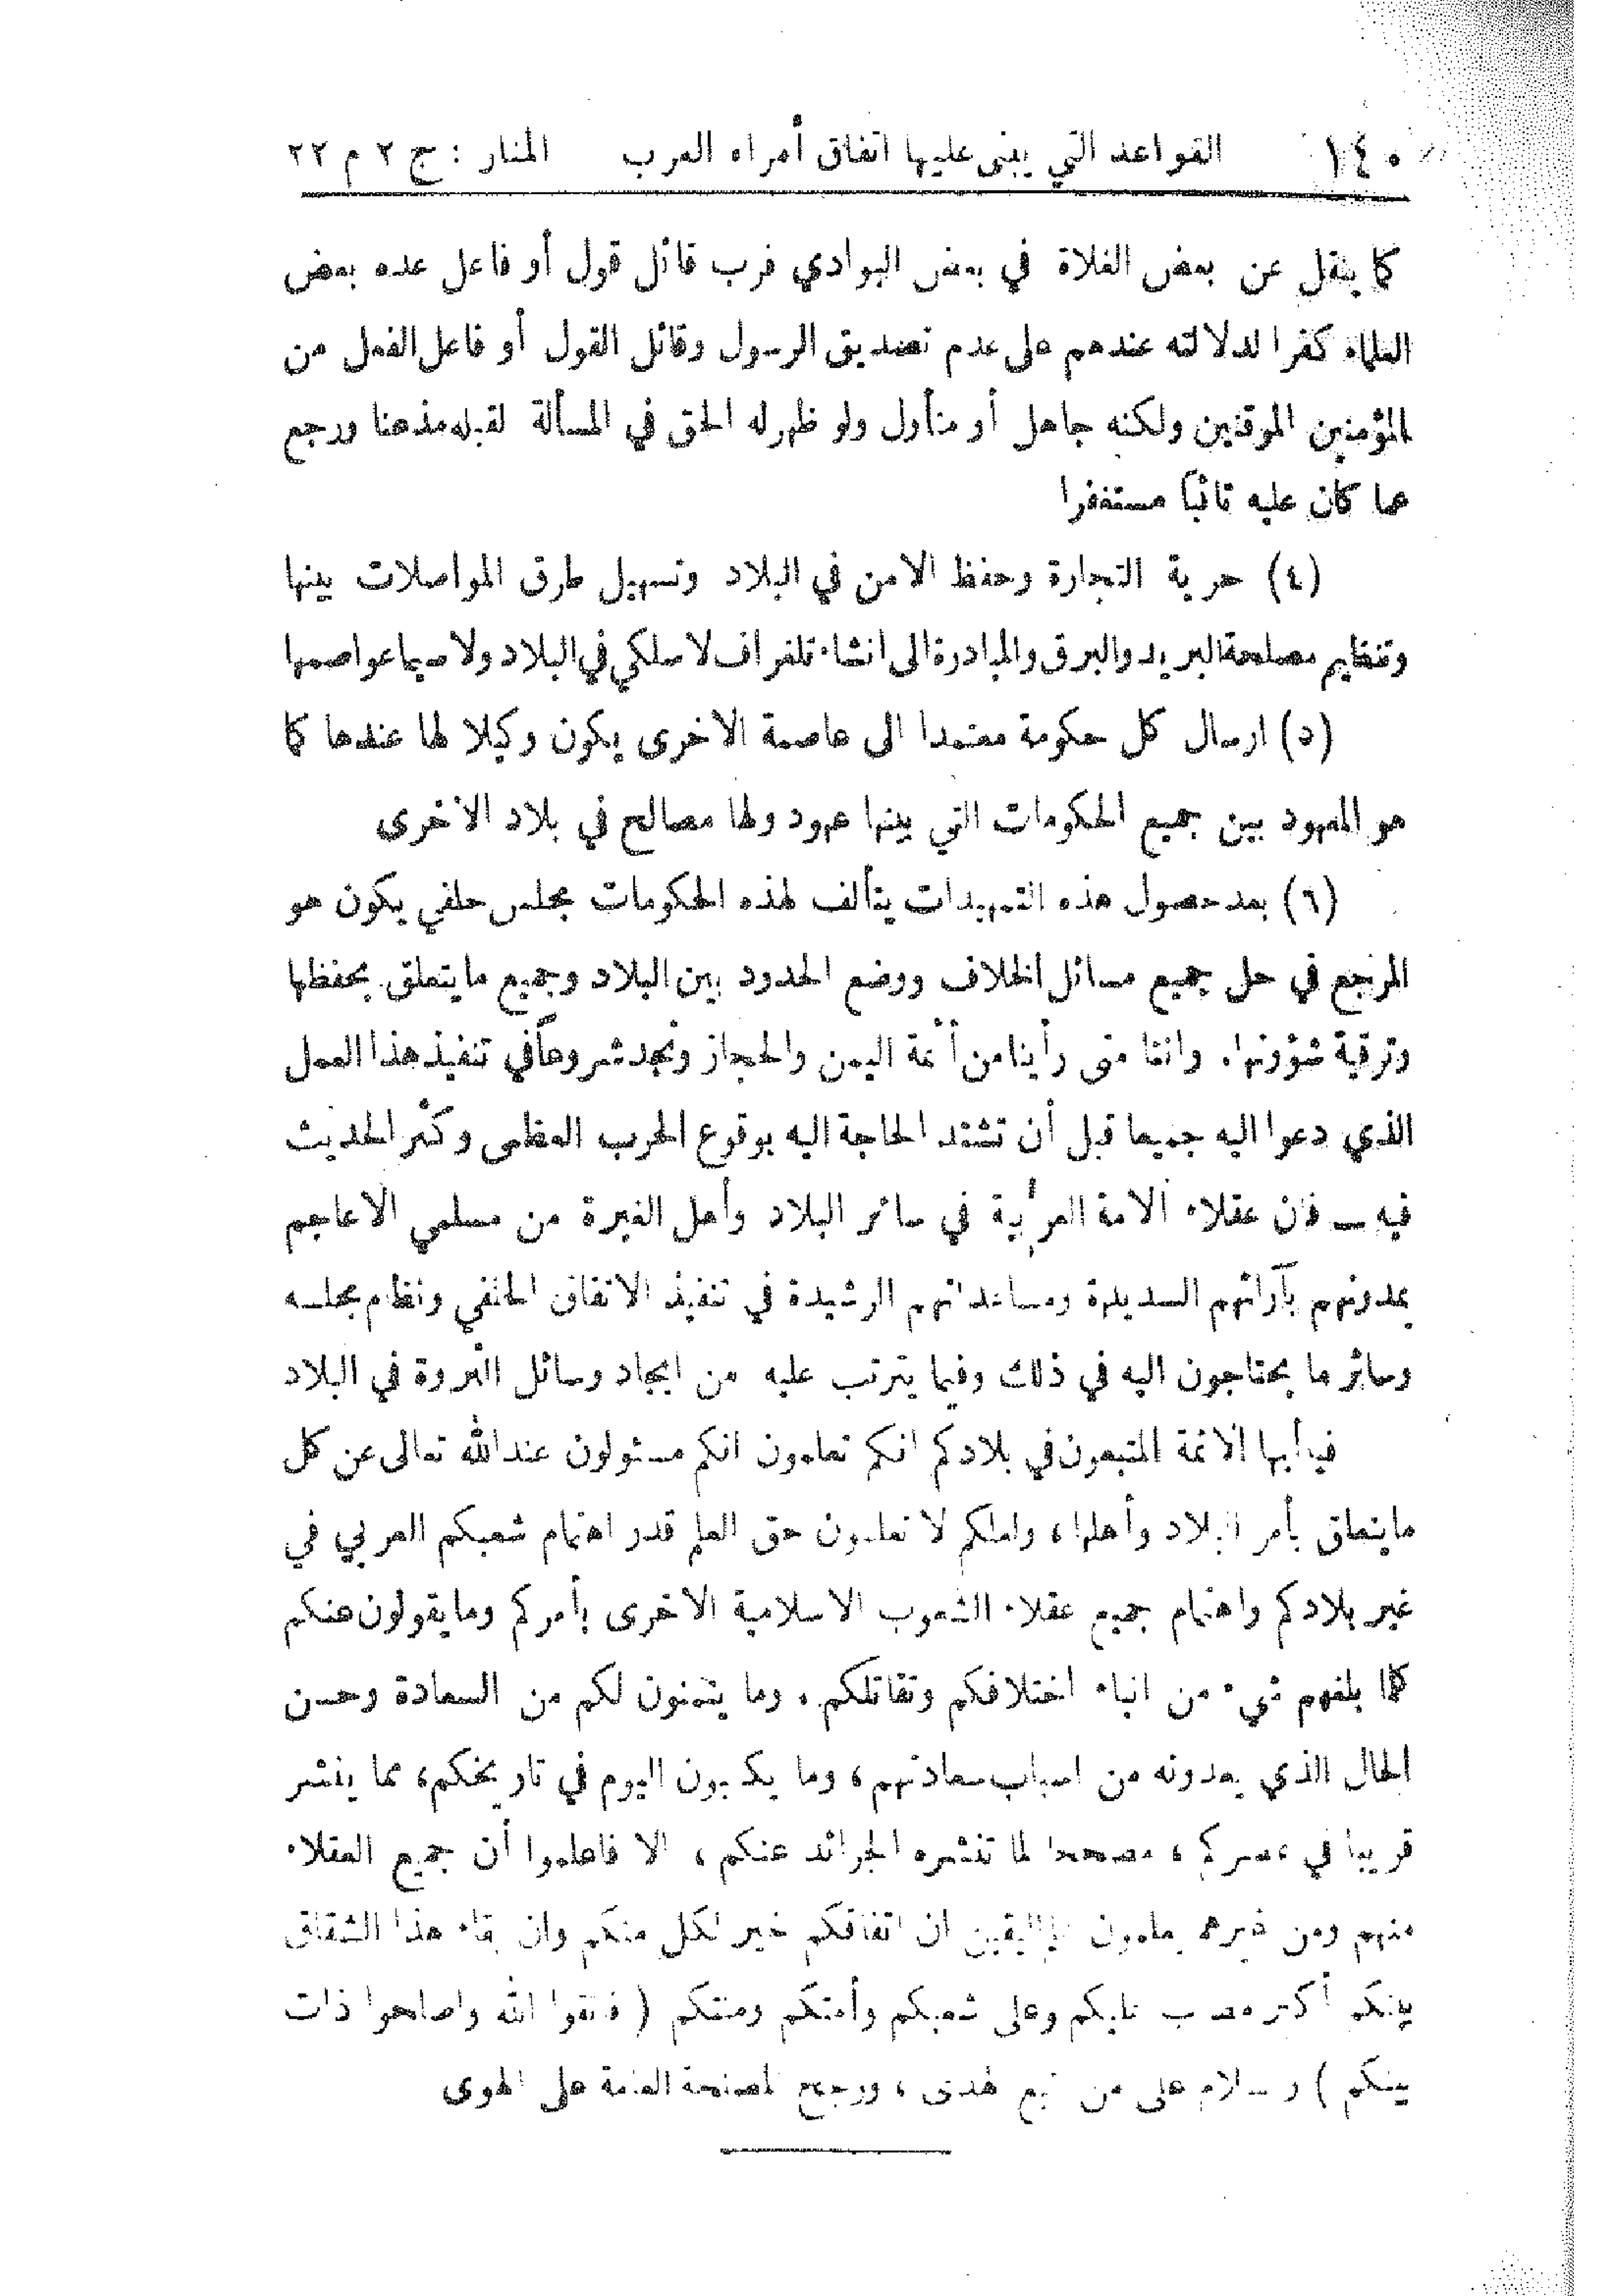 ١٤٠ القواعد التي يبنى عليها اتفاق أمراء العرب المنار : ج ٢ م ٢٢
كما ينقل عن بعض الغلاة في بعض البوادي فرب قائل قول أو فاعل عده بعض
العلماء كفرا لدلالته عندهم على عدم تصديق الرسول وقائل القول أو فاعل الفعل من
المؤمنين الموقنين ولكنه جاهل أو متأول ولو ظهر له الحق في المسألة لقبله مذعنا ورجع
عما كان عليه تائبًا مستغفرا
(٤) حرية التجارة وحفظ الامن في البلاد وتسهيل طرق المواصلات بينها
وتنظيم مصلحة البريد والبرق والمبادرة الى انشاء تلغراف لاسلكي في البلاد ولا سيما عواصمها
(٥) ارسال كل حكومة معتمدا الى عاصمة الاخرى يكون وكيلا لها عندها كما
هو المعهود بين جميع الحكومات التي بينها عهود ولها مصالح في بلاد الاخرى
(٦) بعد حصول هذه التمهيدات يتألف لهذه الحكومات مجلس حلفي يكون هو
المرجع في حل جميع مسائل الخلاف ووضع الحدود بين البلاد وجميع ما يتعلق بحفظها
وترقية شؤونها. واننا متى رأينا من أئمة اليمن والحجاز ونجد شروعاً في تنفيذ هذا العمل
الذي دعوا اليه جميعا قبل أن تشتد الحاجة اليه بوقوع الحرب العظمى وكثر الحديث
فيه ــ فان عقلاء الامة العربية في سائر البلاد وأهل الغيرة من مسلمي الاعاجم
يمدونهم بآرائهم السديدة ومساعداتهم الرشيدة في تنفيذ الاتفاق الحلفي ونظام مجلسه
وسائر ما يحتاجون اليه في ذلك وفيما يترتب عليه من ايجاد وسائل الثروة في البلاد
فيا أيها الائمة المتبعون في بلادكم انكم تعلمون انكم مسئولون عند الله تعالى عن كل
ما يتعلق بأمر البلاد وأهلها، ولعلكم لا تعلمون حق العلم قدر اهتمام شعبكم العربي في
غير بلادكم واهتمام جميع عقلاء الشعوب الاسلامية الاخرى بأمركم وما يقولون عنكم
كلما بلغهم شيء من انباء اختلافكم وتقاتلكم. وما يتمنون لكم من السعادة وحسن
الحال الذي يعدونه من اسباب سعادتهم، وما يكتبون اليوم في تاريخكم، مما ينشر
قريبا في عصركم، مصححا لما تنشره الجرائد عنكم، الا فاعلموا أن جميع العقلاء
منهم ومن غيرهم يعلمون باليقين ان اتفاقكم خير لكل منكم وان بقاء هذا الشقاق
بينكم أكبر مصاب عليكم وعلى شعبكم وأمتكم وملتكم ( فاتقوا الله واصلحوا ذات
بينكم ) والسلام على من اتبع الهدى، ورجح المصلحة العامة على الهوى